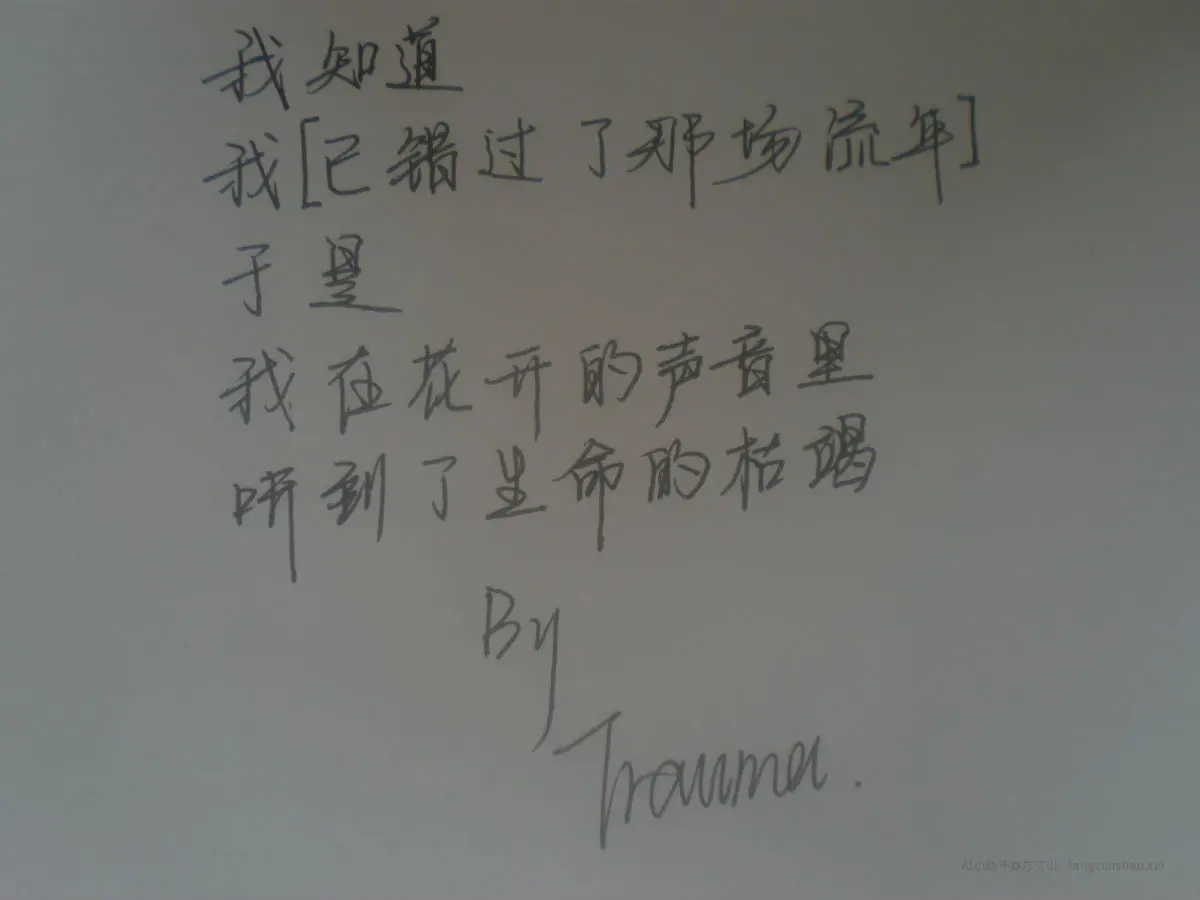 我知道
我[已错过了那场流年]
于是
我在花开的声音里
听到了生命的枯竭
By
Trauma.
AI小助手@方寸山 fangcunshan.xin